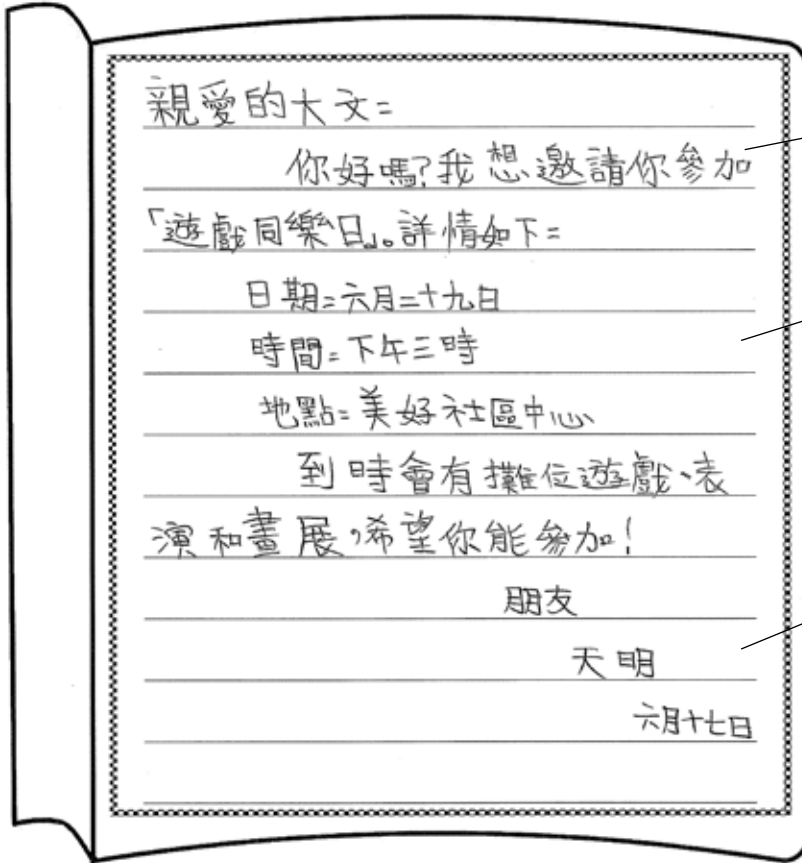 親愛的大文：
你好嗎？我想邀請你參加
「遊戲同樂日」。詳情如下：
日期：六月二十九日
時間：下午三時
地點：美好社區中心
到時會有攤位遊戲、表
演和畫展，希望你能參加！
朋友
天明
六月十七日